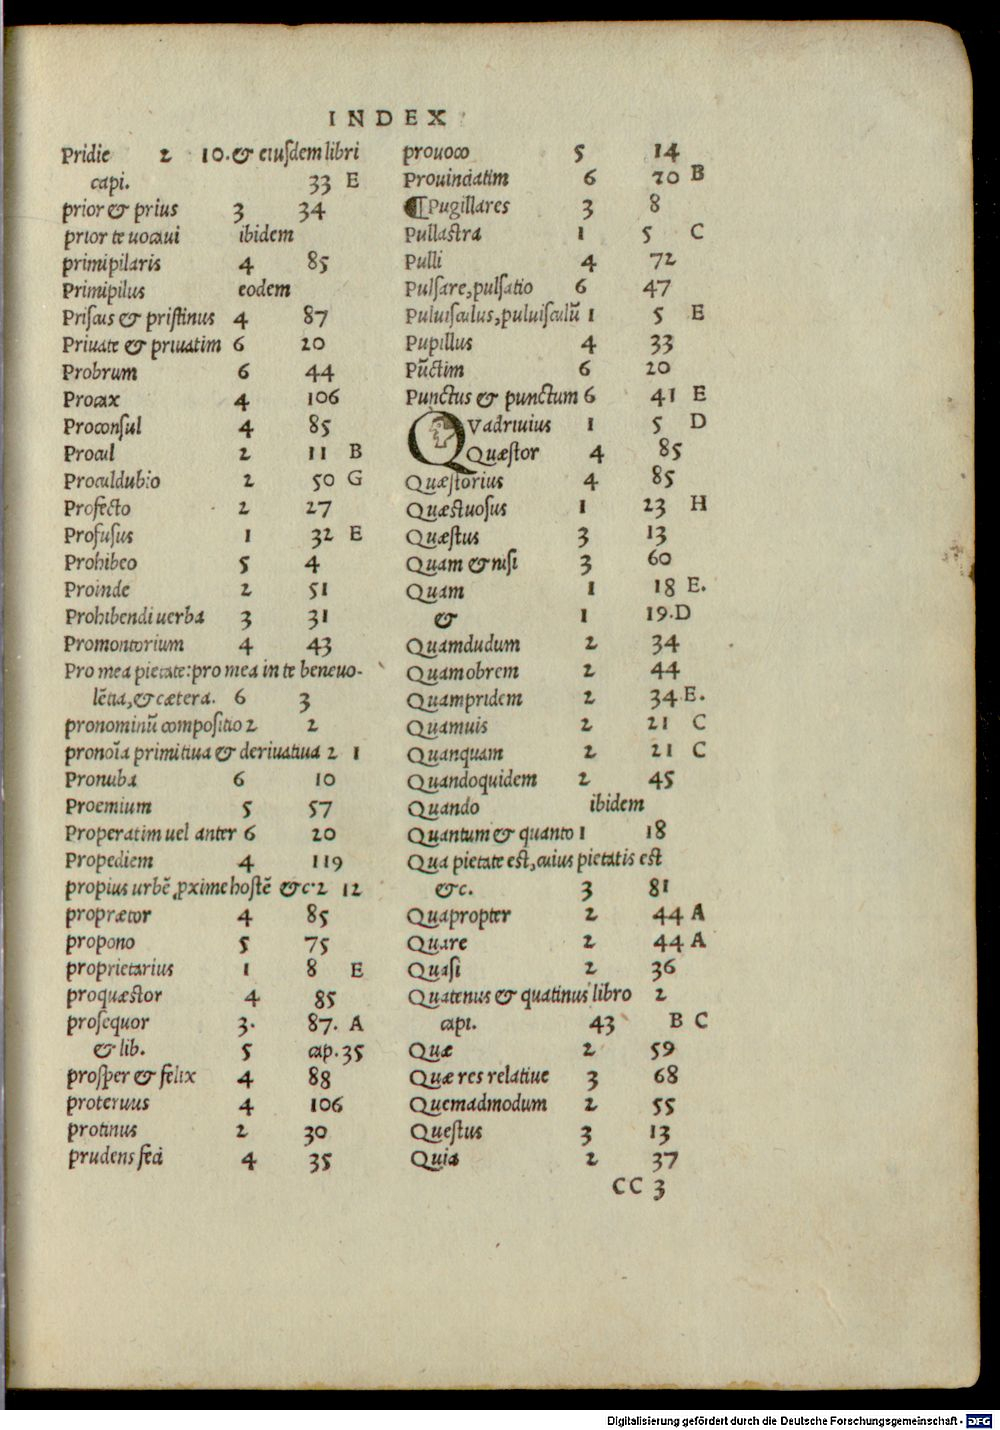 INDEX
Pridie 2 10. & eiusdem libri
capi. 33 E
prior & prius 3 34
prior te uocaui ibidem
primipilaris 4 85
Primipilus eodem
Priscus & pristinus 4 87
Priuate & priuatim 6 20
Probrum 6 44
Procax 4 106
Proconsul 4 85
Procul 2 11 B
Proculdubio 2 50 G
Profecto 2 27
Profusus 1 32 E
Prohibeo 5 4
Proinde 2 51
Prohibendi uerba 3 31
Promontorium 4 43
Pro mea pietate: pro mea in te beneuo-
lẽtia, & cætera. 6 3
pronominũ compositio 2 2
pronoĩa primitiua & deriuatiua 2 1
Pronuba 6 10
Proemium 5 57
Properatim uel anter 6 20
Propediem 4 119
propius urbẽ ꝓxime hostẽ &c. 2 12
proprætor 4 85
propono 5 75
proprietarius 1 8 E
proquæstor 4 85
prosequor 3. 87. A
& lib. 5 cap. 35
prosper & felix 4 88
proteruus 4 106
protinus 2 30
prudens feci 4 35
prouoco 5 14
Prouinciatim 6 20 B
¶Pugillares 3 8
Pullastra 1 5 C
Pulli 4 72
Pulsare, pulsatio 6 47
Puluisculus, puluisculũ 1 5 E
Pupillus 4 33
Pũctim 6 20
Punctus & punctum 6 41 E
QVadriuius 1 5 D
Quæstor 4 85
Quæstorius 4 85
Quæstuosus 1 23 H
Quæstus 3 13
Quam & nisi 3 60
Quam 1 18 E.
& 1 19. D
Quamdudum 2 34
Quamobrem 2 44
Quampridem 2 34 E.
Quamuis 2 21 C
Quanquam 2 21 C
Quandoquidem 2 45
Quando ibidem
Quantum & quanto 1 18
Qua pietate est, cuius pietatis est
&c. 3 81
Quapropter 2 44 A
Quare 2 44 A
Quasi 2 36
Quatenus & quatinus libro 2
capi. 43 B C
Quæ 2 59
Quæ res relatiue 3 68
Quemadmodum 2 55
Questus 3 13
Quia 2 37
CC 3
Digitalisierung gefördert durch die Deutsche Forschungsgemeinschaft - DFG